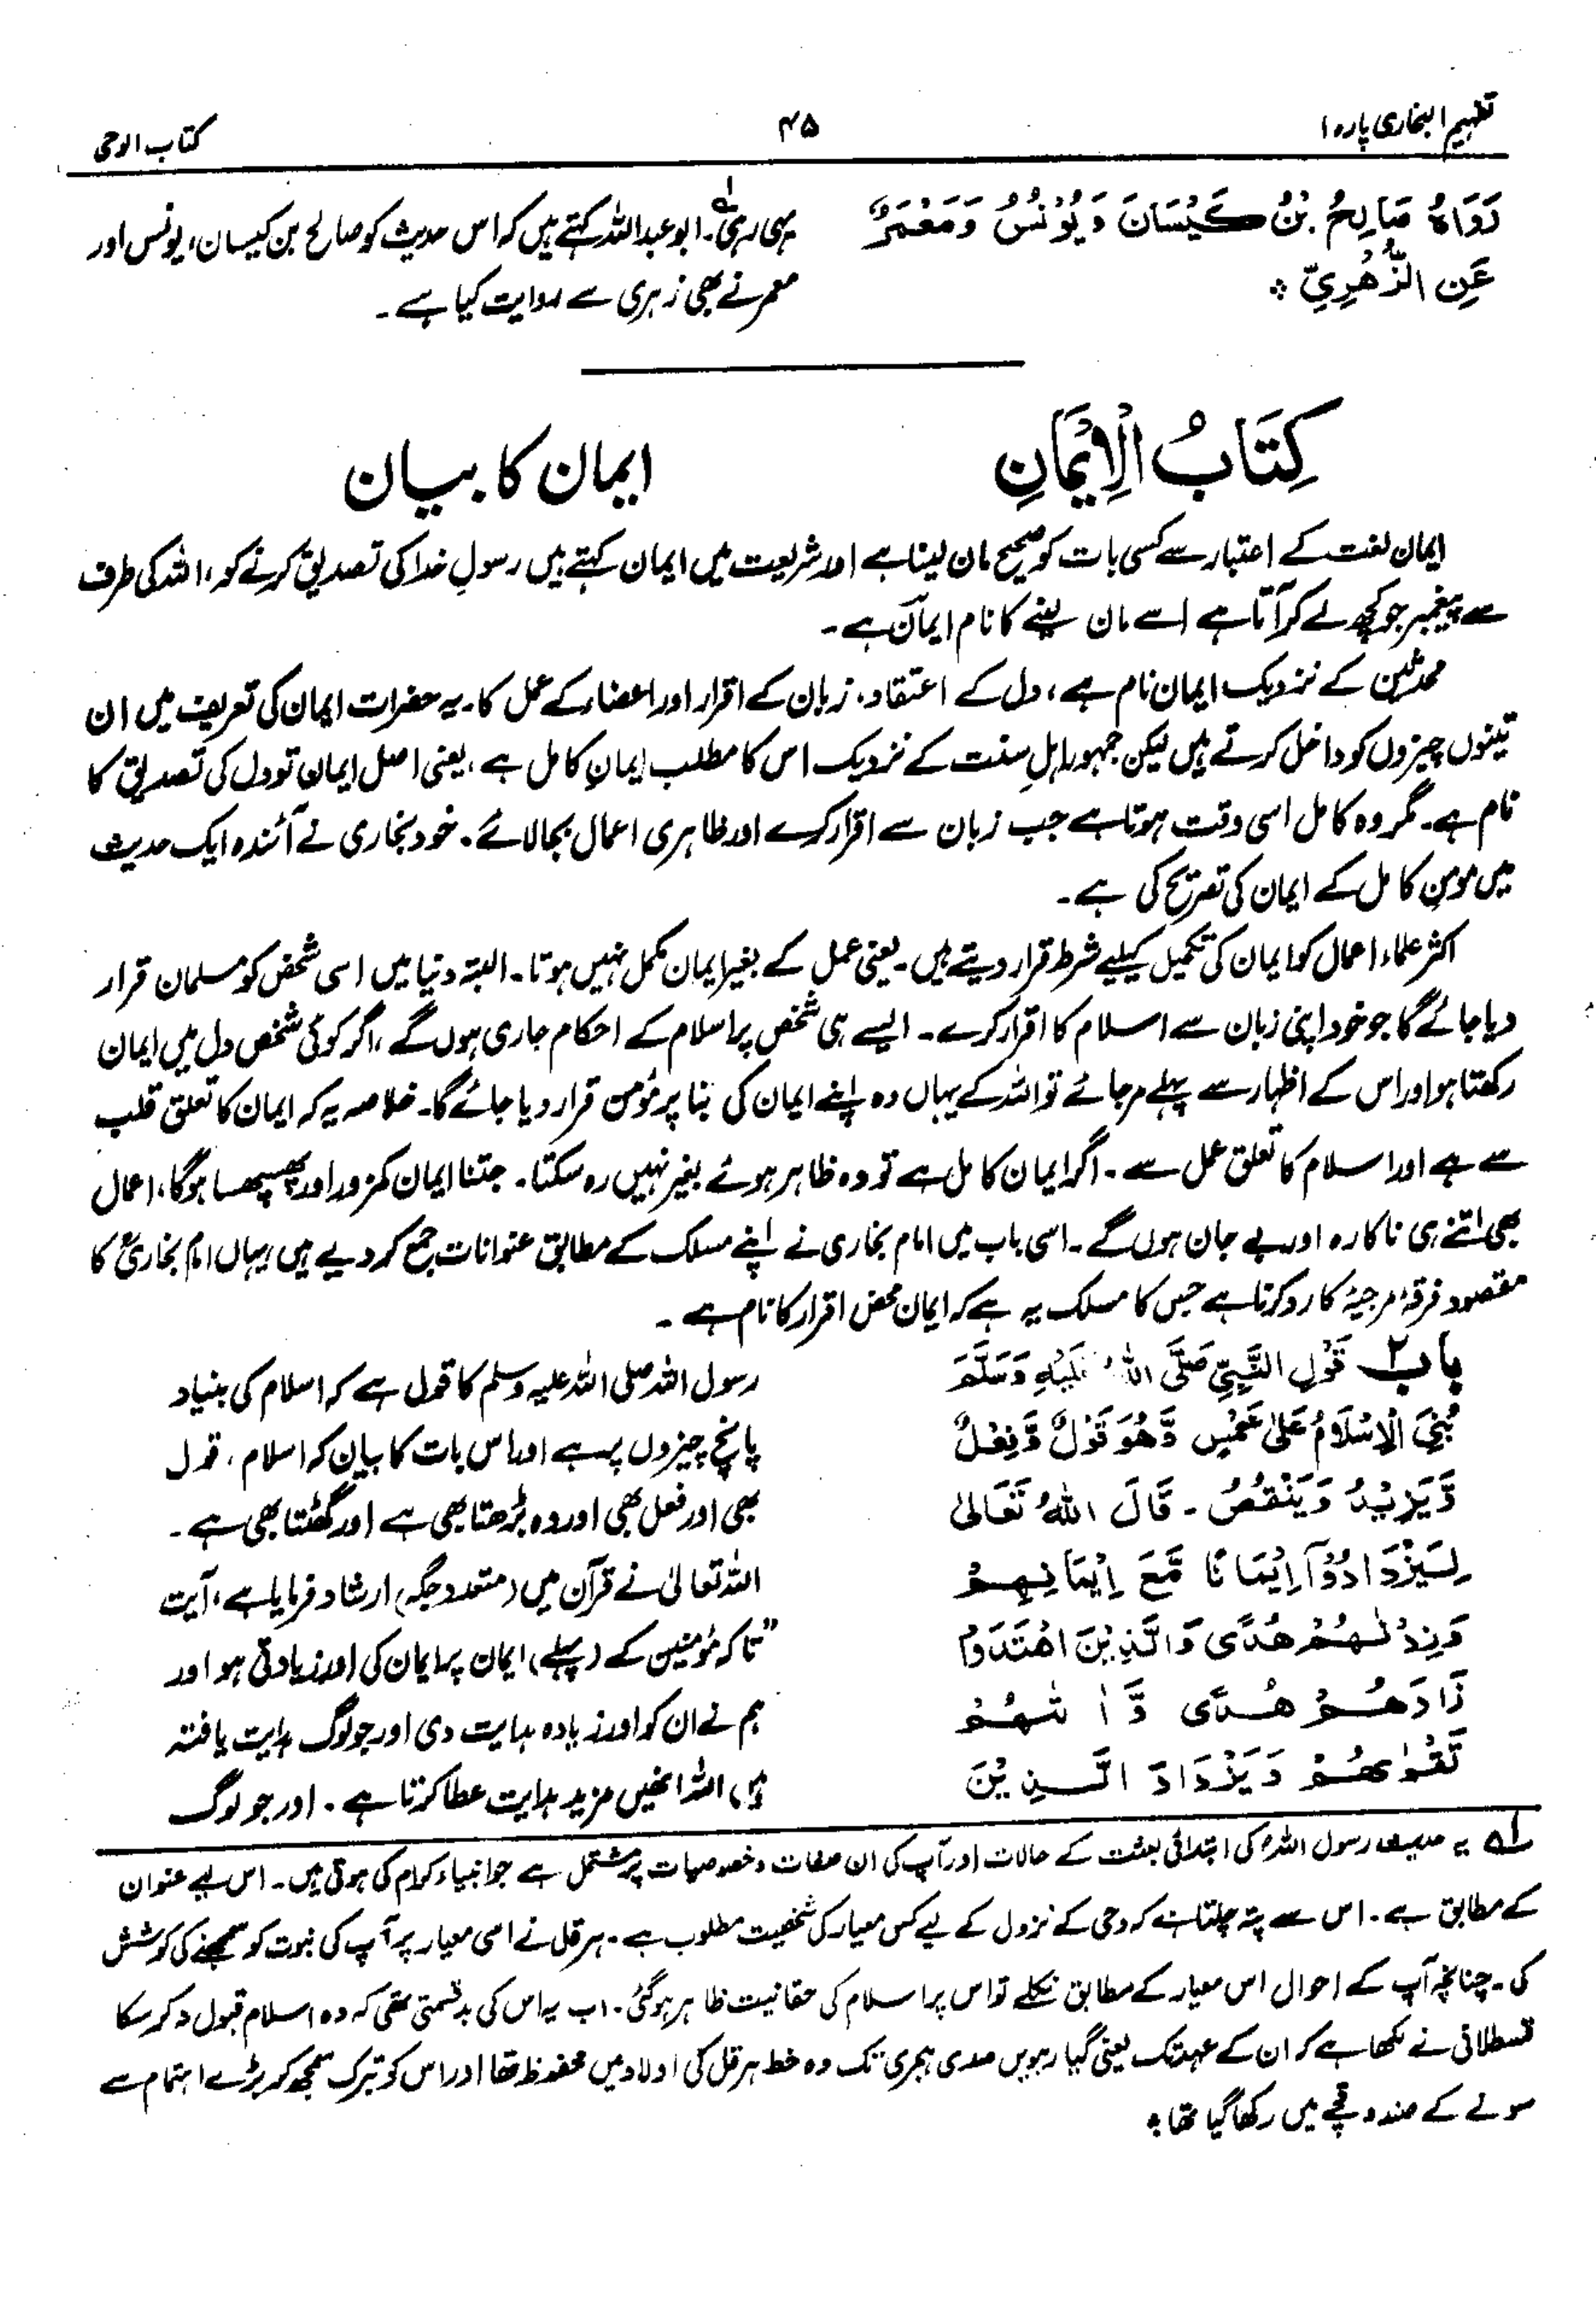 تفہیم البخاری پارہ ۱
۴۵
کتاب الوحی
رَوَاهُ صَالِحُ بْنُ كَيْسَانَ وَيُوْنُسُ وَمَعْمَرٌ
عَنِ الزُّهْرِيِّ ۞
یہی رہی لہ۔ ابو عبداللہ کہتے ہیں کہ اس حدیث کو صالح بن کیسان، یونس اور
معمر نے بھی زہری سے روایت کیا ہے۔
كِتَابُ الْاِيْمَانِ
ایمان کا بیان
ایمان لغت کے اعتبار سے کسی بات کو صحیح مان لینا ہے اور شریعت میں ایمان کہتے ہیں رسولِ خدا کی تصدیق کرنے کو، اللہ کی طرف
سے پیغمبر جو کچھ لے کر آتا ہے اسے مان لینے کا نام ایمان ہے۔
محدثین کے نزدیک ایمان نام ہے، دل کے اعتقاد، زبان کے اقرار اور اعضاء کے عمل کا۔ یہ حضرات ایمان کی تعریف میں ان
تینوں چیزوں کو داخل کرتے ہیں لیکن جمہور اہلِ سنت کے نزدیک اس کا مطلب ایمانِ کامل ہے، یعنی اصل ایمان تو دل کی تصدیق کا
نام ہے۔ مگر وہ کامل اسی وقت ہوتا ہے جب زبان سے اقرار کرے اور ظاہری اعمال بجا لائے۔ خود بخاری نے آئندہ ایک حدیث
میں مومنِ کامل کے ایمان کی تصریح کی ہے۔
اکثر علماء اعمال کو ایمان کی تکمیل کیلیے شرط قرار دیتے ہیں۔ یعنی عمل کے بغیر ایمان مکمل نہیں ہوتا۔ البتہ دنیا میں اسی شخص کو مسلمان قرار
دیا جائے گا جو خود اپنی زبان سے اسلام کا اقرار کرے۔ ایسے ہی شخص پر اسلام کے احکام جاری ہوں گے، اگر کوئی شخص دل میں ایمان
رکھتا ہو اور اس کے اظہار سے پہلے مر جائے تو اللہ کے یہاں وہ اپنے ایمان کی بنا پر مؤمن قرار دیا جائے گا۔ خلاصہ یہ کہ ایمان کا تعلق قلب
سے ہے اور اسلام کا تعلق عمل سے۔ اگر ایمان کامل ہے تو وہ ظاہر ہوئے بغیر نہیں رہ سکتا۔ جتنا ایمان کمزور اور پھسپھسا ہوگا، اعمال
بھی اتنے ہی ناکارہ اور بے جان ہوں گے۔ اسی باب میں امام بخاری نے اپنے مسلک کے مطابق عنوانات جمع کر دیے ہیں یہاں امام بخاریؒ کا
مقصود فرقۂ مرجیہ کا رد کرنا ہے جس کا مسلک یہ ہے کہ ایمان محض اقرار کا نام ہے۔
باب ۲ قَوْلِ النَّبِيِّ صَلَّى اللهُ عَلَيْهِ وَسَلَّمَ
بُنِيَ الْاِسْلَامُ عَلٰى خَمْسٍ وَّهُوَ قَوْلٌ وَّفِعْلٌ
وَّيَزِيْدُ وَيَنْقُصُ۔ قَالَ اللهُ تَعَالٰى
لِيَزْدَادُوْآ اِيْمَانًا مَّعَ اِيْمَانِهِمْ
وَزِدْنٰهُمْ هُدًى وَالَّذِيْنَ اهْتَدَوْا
زَادَهُمْ هُدًى وَّاٰتٰهُمْ
تَقْوٰىهُمْ وَيَزْدَادَ الَّذِيْنَ
رسول اللہ صلی اللہ علیہ وسلم کا قول ہے کہ اسلام کی بنیاد
پانچ چیزوں پر ہے اور اس بات کا بیان کہ اسلام، قول
بھی اور فعل بھی اور وہ بڑھتا بھی ہے اور گھٹتا بھی ہے۔
اللہ تعالیٰ نے قرآن میں (متعدد جگہ) ارشاد فرمایا ہے، آیت
"تاکہ مؤمنین کے (پہلے) ایمان پر ایمان کی اور زیادتی ہو اور
ہم نے ان کو اور زیادہ ہدایت دی اور جو لوگ ہدایت یافتہ
ہیں اللہ انھیں مزید ہدایت عطا کرتا ہے۔ اور جو لوگ
لہ یہ حدیث رسول اللہؐ کی ابتدائی بعثت کے حالات اور آپ کی ان صفات وخصوصیات پر مشتمل ہے جو انبیاء کرام کی ہوتی ہیں۔ اس لیے عنوان
کے مطابق ہے۔ اس سے پتہ چلتا ہے کہ وحی کے نزول کے لیے کس معیار کی شخصیت مطلوب ہے۔ ہرقل نے اسی معیار پر آپ کی نبوت کو سمجھنے کی کوشش
کی۔ چنانچہ آپ کے احوال اس معیار کے مطابق نکلے تو اس پر اسلام کی حقانیت ظاہر ہوگئی۔ اب یہ اس کی بدقسمتی تھی کہ وہ اسلام قبول نہ کر سکا
قسطلانی نے لکھا ہے کہ ان کے عہد تک یعنی گیارہویں صدی ہجری تک وہ خط ہرقل کی اولاد میں محفوظ تھا اور اس کو تبرک سمجھ کر بڑے اہتمام سے
سونے کے صندوقچے میں رکھا گیا تھا ۞